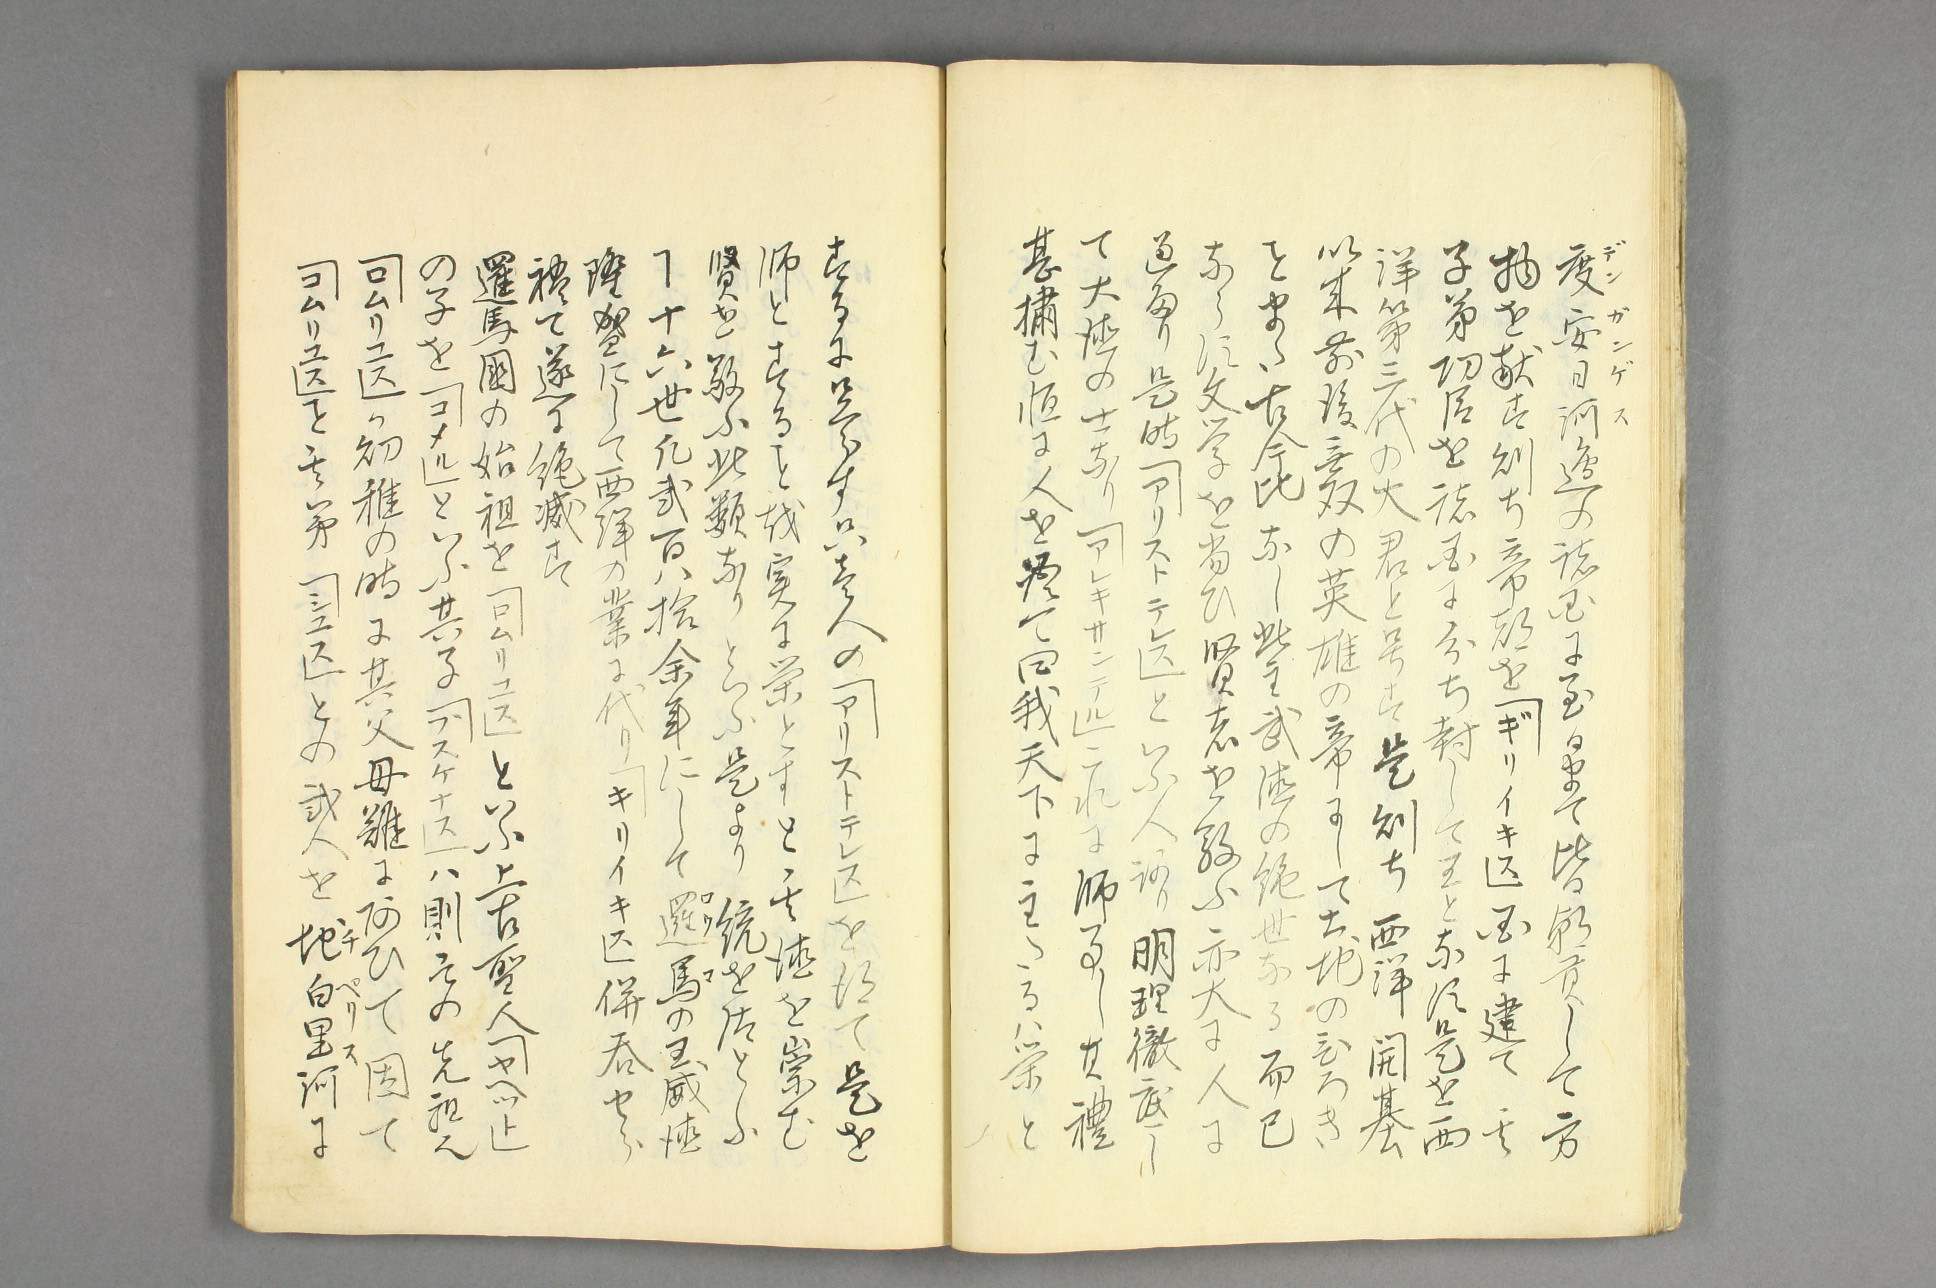 度安日河邉の諸国に至る迠て皆朝貢して方
物を献す則ち帝都を「ギリイキス」国に建て其
子弟功臣を諸国に分ち封して王と為す是を西
洋第三代の大君と号す是則ち西洋開基
以来前後無双の英雄の帝にして土地のひろき
こと古今比なし此王武徳の絶世なる而已
ならす文学を尚ひ賢者を敬ふ亦大に人に
過たり是時「アリストテレス」と いふ人 有り明理徹底し
て大徳の士なり「アレキサンテル」これに師事し其禮
甚精む恒に人を 曰我天下に主たるハ栄と
するに足らす只吾人の「アリストテレス」を得て是を
師とすること越実に栄とすと其徳を崇む
賢を敬ふ此類なりといふ是より統を伝ふ
て十六世凡弐百八拾余年にして邏馬の王威徳
隆盛にして西洋の業に代り「キリイキス」併呑せら
れて遂に絶滅す
邏馬國の始祖を「ロムリユス」といふ上古聖人「ヤヘット」
の子を「コメル」といふ其子「アスケナス」ハ則その先祖也
「ロムリユス」幼稚の時に其父母難にあひて因て
「ロムリユス」と其弟「 ユス」との弐人を地白里河に